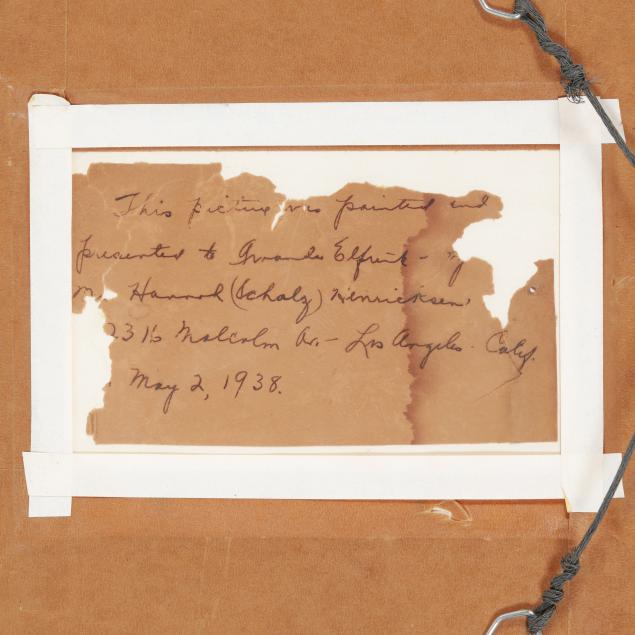 This picture was painted and
presented to Amanda Elfrink - by
M. Hannah (Scholz) Henricksen,
2316 Malcolm Av. - Los Angeles. Calif.
May 2, 1938.